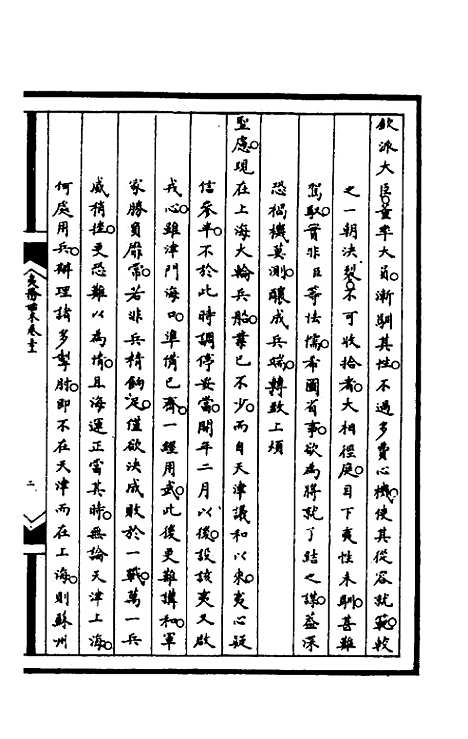 欽派大臣董率大員漸馴其性不過多費心機使其從容就範較
之一朝決裂不可收拾者大相徑庭目下夷性未馴甚難
駕馭實非臣等怯懦希圖省事欲為將就了結之謀益深
恐禍機莫測釀成兵端轉致上煩
聖慮現在上海大輪兵船業已不少而自天津議和以來夷心疑
信參半不於此時調停妥當開年二月以後設該夷又啟
戎心雖津門海口準備已齊一經用武此後更難講和軍
家勝負靡常若非兵精餉足僅欲決成敗於一戰萬一兵
威稍挫更恐難以為情且海運正當其時無論天津上海
何處用兵辦理諸多掣肘即不在天津而在上海則蘇州
二